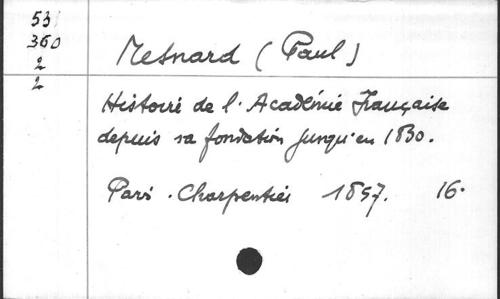 53
360
2
2
Mesnard (Paul)
Histoire de l'Académie Française
depuis sa fondation jusqu'en 1830.
Paris. Charpentier 1857. 16.